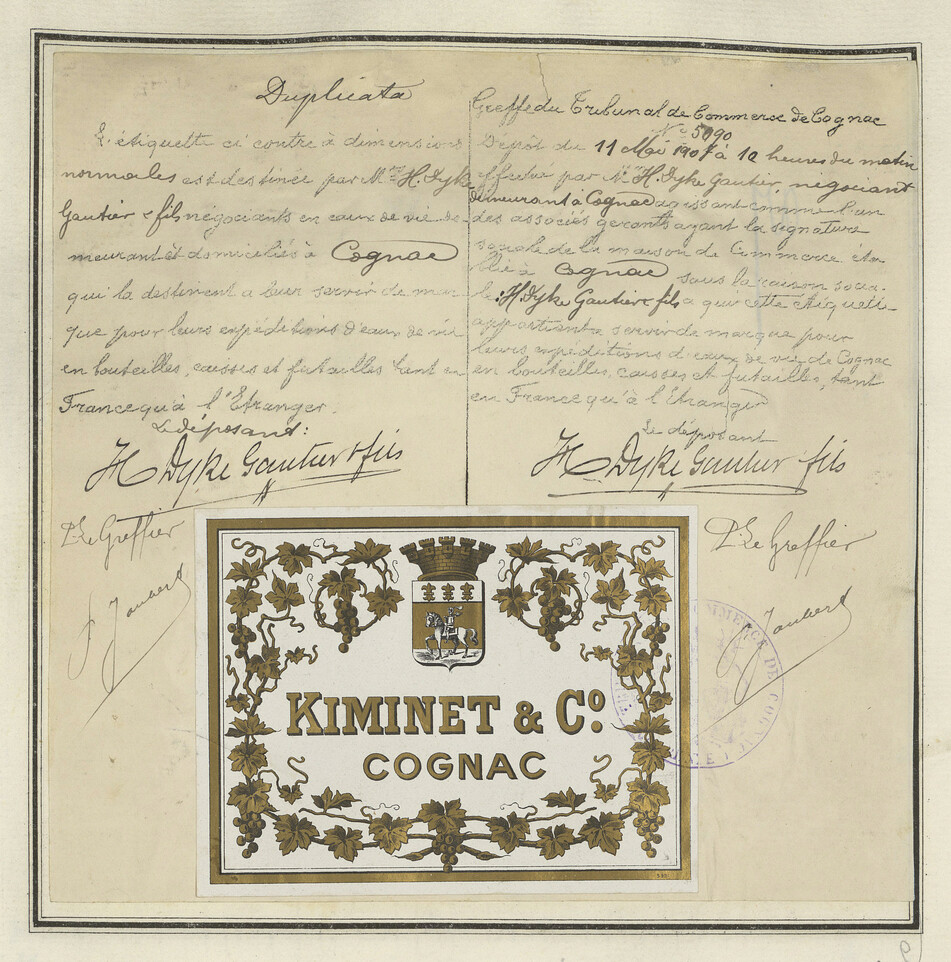 Duplicata
L'étiquette ci contre à dimensions
normales est destinée par Mrs H. Dyke
Gautier & fils négociants en eaux de vie de-
meurant et domiciliés à Cognac
qui la destinent a leur servir de mar-
que pour leurs expéditions d'eaux de vie
en bouteilles, caisses et futailles tant en
France qu'à l'Etranger.
Le déposant:
H Dyke Gautier & fils
P. Le Greffier
Greffe du Tribunal de Commerce de Cognac
No 5090
Dépôt du 11 Mai 1907 à 10 heures du matin
effectué par Mr H. Dyke Gautier, négociant
demeurant à Cognac agissant comme l'un
des associés gerants ayant la signature
sociale de la maison de Commerce éta-
blie à Cognac sous la raison socia-
le: H. Dyke Gautier & fils a que cette étiquette
appartient servir de marque pour
leurs expéditions d'eaux de vie de Cognac
en bouteilles, caisses et futailles, tant
en France qu'à l'Etranger
Le déposant
H Dyke Gautier & fils
P. Le Greffier
KIMINET & Co.
COGNAC